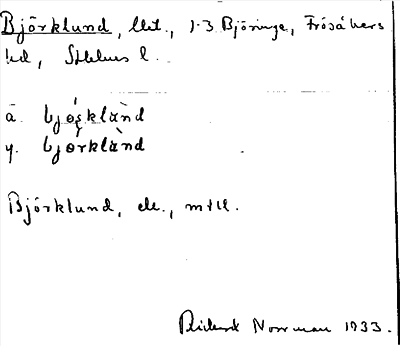 Björklund, lht., 1-3 Björinge, Frösåkers
hd, Sthlms l.
a. bjo̗rklànd
y. bjo̗rklànd
Björklund, ele., mtll.
Rickard Norrman 1933.